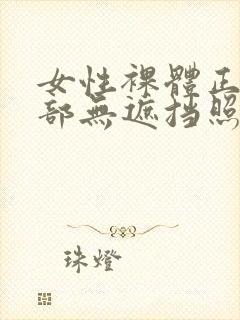 女性裸體正
部無遮挡照
珠燈